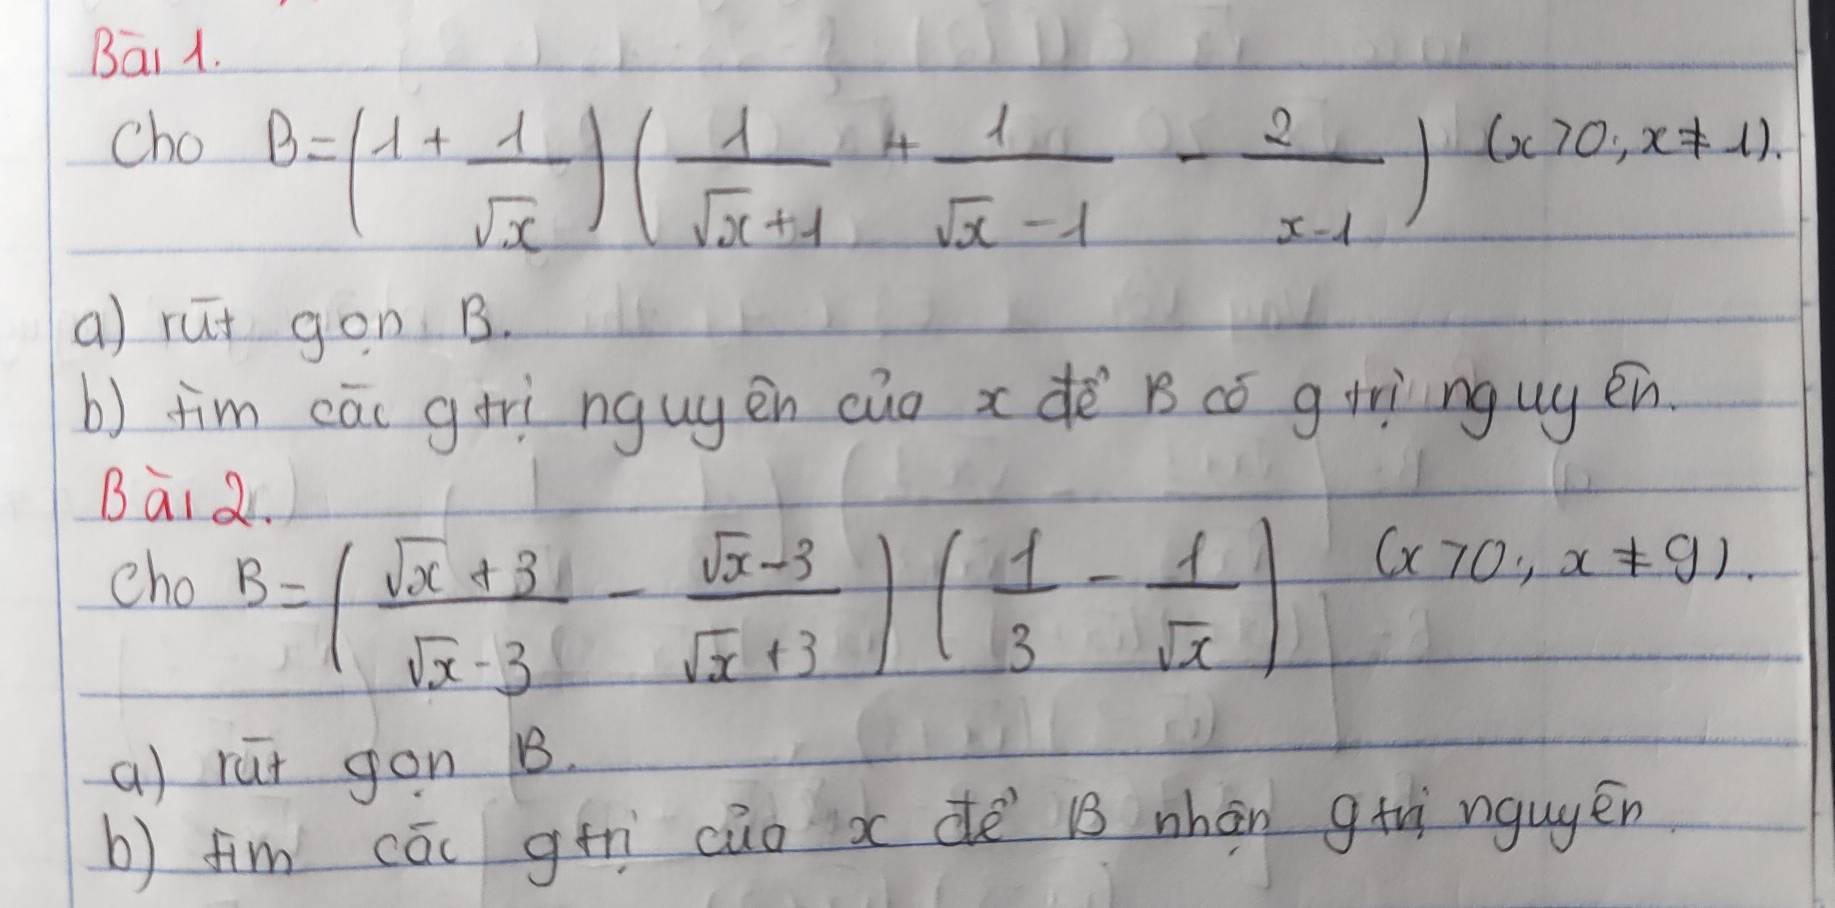 Bài 1.
Cho B = (1 + 1/√x)(1/(√x + 1) + 1/(√x - 1) - 2/(x - 1)) (x > 0; x ≠ 1).
a) rút gọn B.
b) tìm các gtrị nguyên của x để B có gtrị nguyên.
Bài 2.
Cho B = ((√x + 3)/(√x - 3) - (√x - 3)/(√x + 3))(1/3 - 1/√x) (x > 0; x ≠ 9).
a) rút gọn B.
b) tìm các gtrị của x để B nhận gtrị nguyên